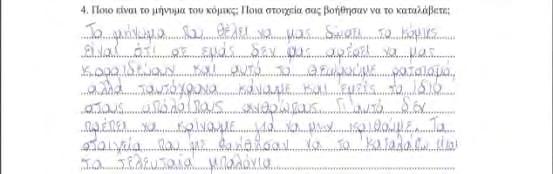 4. Ποιο είναι το μήνυμα του κόμικς; Ποια στοιχεία σας βοήθησαν να το καταλάβετε;
Το μήνυμα που θέλει να μας δώσει το κόμικς
είναι ότι σε εμάς δεν μας αρέσει να μας
κοροιδεύουν και αυτό το θεωρούμε ρατσισμό,
αλλά ταυτόχρονα κάναμε και εμείς το ίδιο
στους υπόλοιπους ανθρώπους. Γι'αυτό δεν
πρέπει να κρίναμε για να μην κριθούμε. Τα
στοιχεία που με βοήθησαν να το καταλάβω είναι
τα τελευταία μπαλόνια